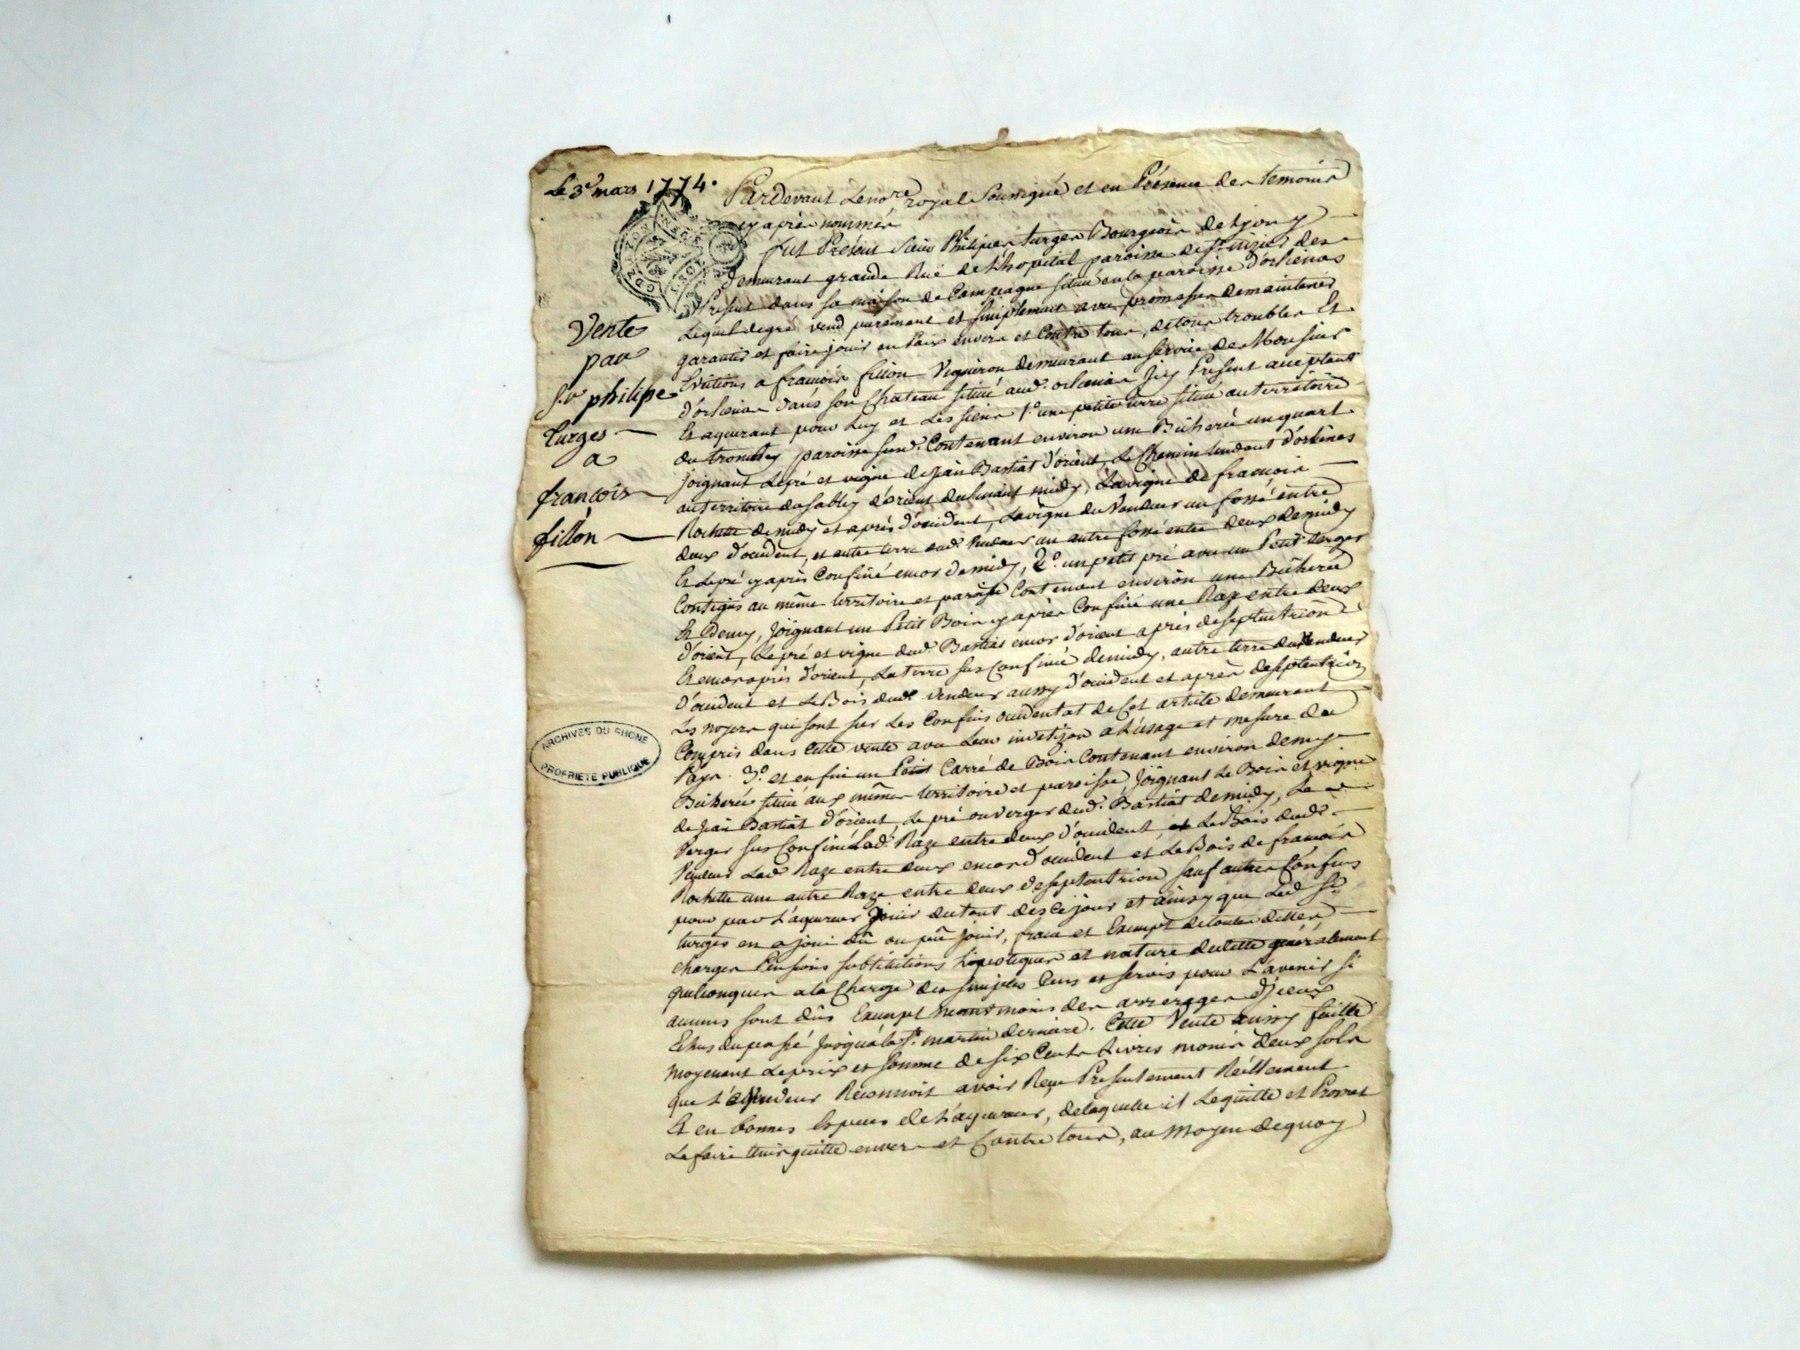 Le 3e mars 1774.
Pardevant Le nore royal Soussigné et en Présence des temoins
cy après nommés
fut Présent Sieur Philipes turges Bourgeois de Lyon y
demeurant grande Rue de L'hopital paroisse de St nizier des
Présent dans sa maison de Campagne situé en la paroisse d'orliénas
Lequel de gré vend purement et simplement avec promesse de maintenir
garantir et faire jouir en Paix envers et Contre tous, de tous troubles Et
Evictions a francois fillon Vigneron demeurant au service de Monsieur
d'orlienas dans son Chateau situé aud. orlienas Icy Présent acceptant
Et aquerant pour Luy et Les siens 1° une petite terre situé au territoire
du trombley paroisse susd. Contenant environ une Bicherée un quart
joignant Le pré et vigne de Jean Bastiat d'orient, Le Chemin tendant d'orliénas
au territoire du sabley d'orient declinant midy, La vigne de francois
Rochette de midy et après d'occident, La vigne du Vendeur un fossé entre
deux d'occident, et autre terre dud. Vendeur un autre fossé entre deux de midy
Et Le pré cy après Confiné encor de midy, 2° un petit pré avec un Petit Verger
Contigus au même territoire et paroisse Contenant environ une Bicherée
Et Demy, Joignant un Petit Bois cy après Confiné une Raze entre deux
d'orient, Le pré et vigne dud. Bastiat encor d'orient après de septentrion
Et encor après d'orient, La terre sus Confinée de midy, autre terre du Vendeur
d'occident et Le Bois dud. Vendeur aussy d'occident et après de septentrion
Les noyers qui sont sur Les Confins occidentat de Cet article demeurant
Compris dans Cette vente avec Leur a L'usage et mesure du
Pays. 3° et en fin un Petit Carré de Bois Contenant environ demy
Bicherée situé aux mêmes territoire et paroisse, Joignant Le Bois et vigne
de Jean Bastiat d'orient, Le pré ou verger dud. Bastiat de midy, Le
Verger sus Confiné Lad. Raze entre deux d'occident, et Le Bois dud.
Vendeur Lad. Raze entre deux encor d'occident et Le Bois de francois
Rochette une autre Raze entre deux de septentrion sauf autres Confins
pour par L'aquereur Jouir du tout des ce jour et ainsy que Led. Sr.
turges en a joui dû ou pû Jouir, franc et Exempt de toutes dettes
charges Pensions substitutions hipoteques et nature de dette généralement
quelconques a la Charge des simples Cens et servis pour L'avenir si
aucuns sont dûs Exempt neanmoins des arrerages d'iceux
Echus du passé Jusqu'a la St. martin derniere. Cette Vente ainsy faitte
moyenant Le prix et somme de six Cents Livres moins deux sols
que Le Vendeur Reconnoit avoir Reçu Presentement Réellement
Et en bonnes Especes de L'aquereur, de laquelle il Le quitte et Promet
Le faire tenir quitte envers et Contre tous, au moyen de quoy
Vente
par
Sr philipe
turges
a
francois
fillon
ARCHIVES DU RHONE
PROPRIETE PUBLIQUE